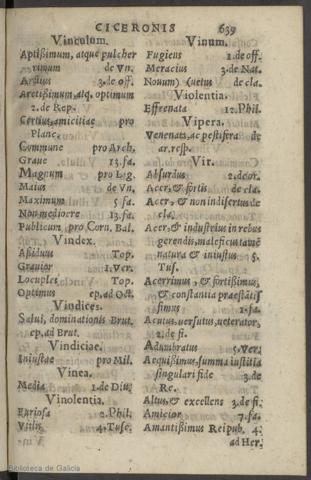 CICERONIS 639
Vinculum.
Aptißimum, atque pulcher
rimum de Vn.
Arctius 3. de off.
Arctißimum, atq. optimum
2. de Rep.
Certius, amicitiæ pro
Planc.
Commune pro Arch.
Graue 13. fa.
Magnum pro Lig.
Maius de Vn.
Maximum 5. fa.
Non mediocre 13. fa.
Publicum pro Corn. Bal.
Vindex.
Aßiduus Top.
Grauior 1. Ver.
Locuples Top.
Optimus ep, ad Oct.
Vindices.
Salui, dominationis Brut.
ep, ad Brut.
Vindiciæ.
Iniustæ pro Mil.
Vinea.
Media 1. de Diu.
Vinolentia.
Furiosa 2. Phil.
Vitis 4. Tusc.
Vinum.
Fugiens 1. de off.
Meracius 3. de Nat.
Nouum) (uetus de cla.
Violentia.
Effrenata 12. Phil.
Vipera.
Venenata, ac pestifera de
ar. resp.
Vir.
Absurdus 2. de or.
Acer, & fortis de cla.
Acer, & non indisertus de
cla.
Acer, & industrius in rebus
gerendis, maleficus tamē
natura & iniustus 5.
Tus.
Acerrimus, & fortißimus,
& constantia præstātis
simus 1. fa.
Acutus, uersutus, ueterator,
2. de fi.
Adumbratus 5. Ver.
Aequißimus, summa iustitia
singulari fide 3. de
Re.
Altus, & excellens 3. de fi.
Amicior 7. fa.
Amantißimus Reipub. 4.
ad Her.
Biblioteca de Galicia